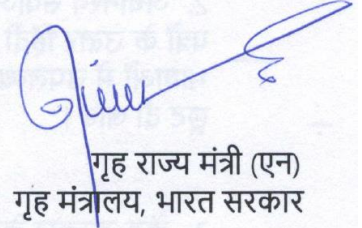 गृह राज्य मंत्री (एन)
गृह मंत्रालय, भारत सरकार